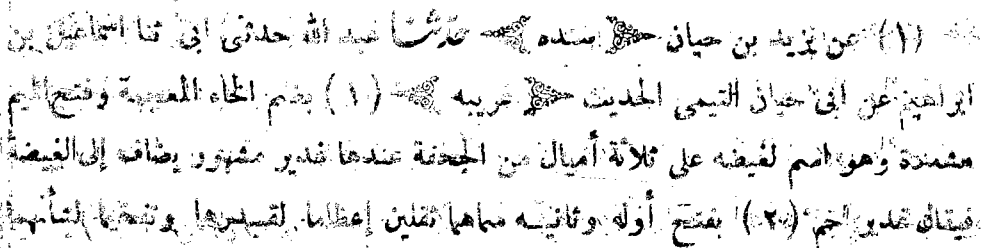 (١) عن يزيد بن حيان ﴿ سنده ﴾ حدثنا عبد الله حدثنى ابى ثنا اسماعيل بن
ابراهيم عن ابى حيان التيمى الحديث ﴿ غريبه ﴾ (١) بضم الخاء المعجمة وفتح الميم
مشددة وهو اسم لغيضه على ثلاثة أميال من الجحفة عندها غدير مشهور يضاف إلى الغيضة
فيقال غدير خم (٢) بفتح أوله وثانيه سماهما ثقلين إعظاما لقدرهما وتفخيما لشأنهما